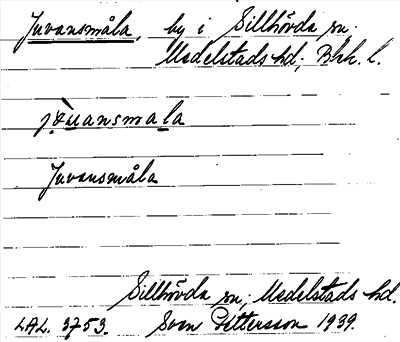 Juvansmåla, by i Sillhövda sn.
Medelstads hd, Blek. l.
Juvansmåla
Sillhövda sn, Medelstads hd.
LAL. 3753. Sven Pettersson 1939.